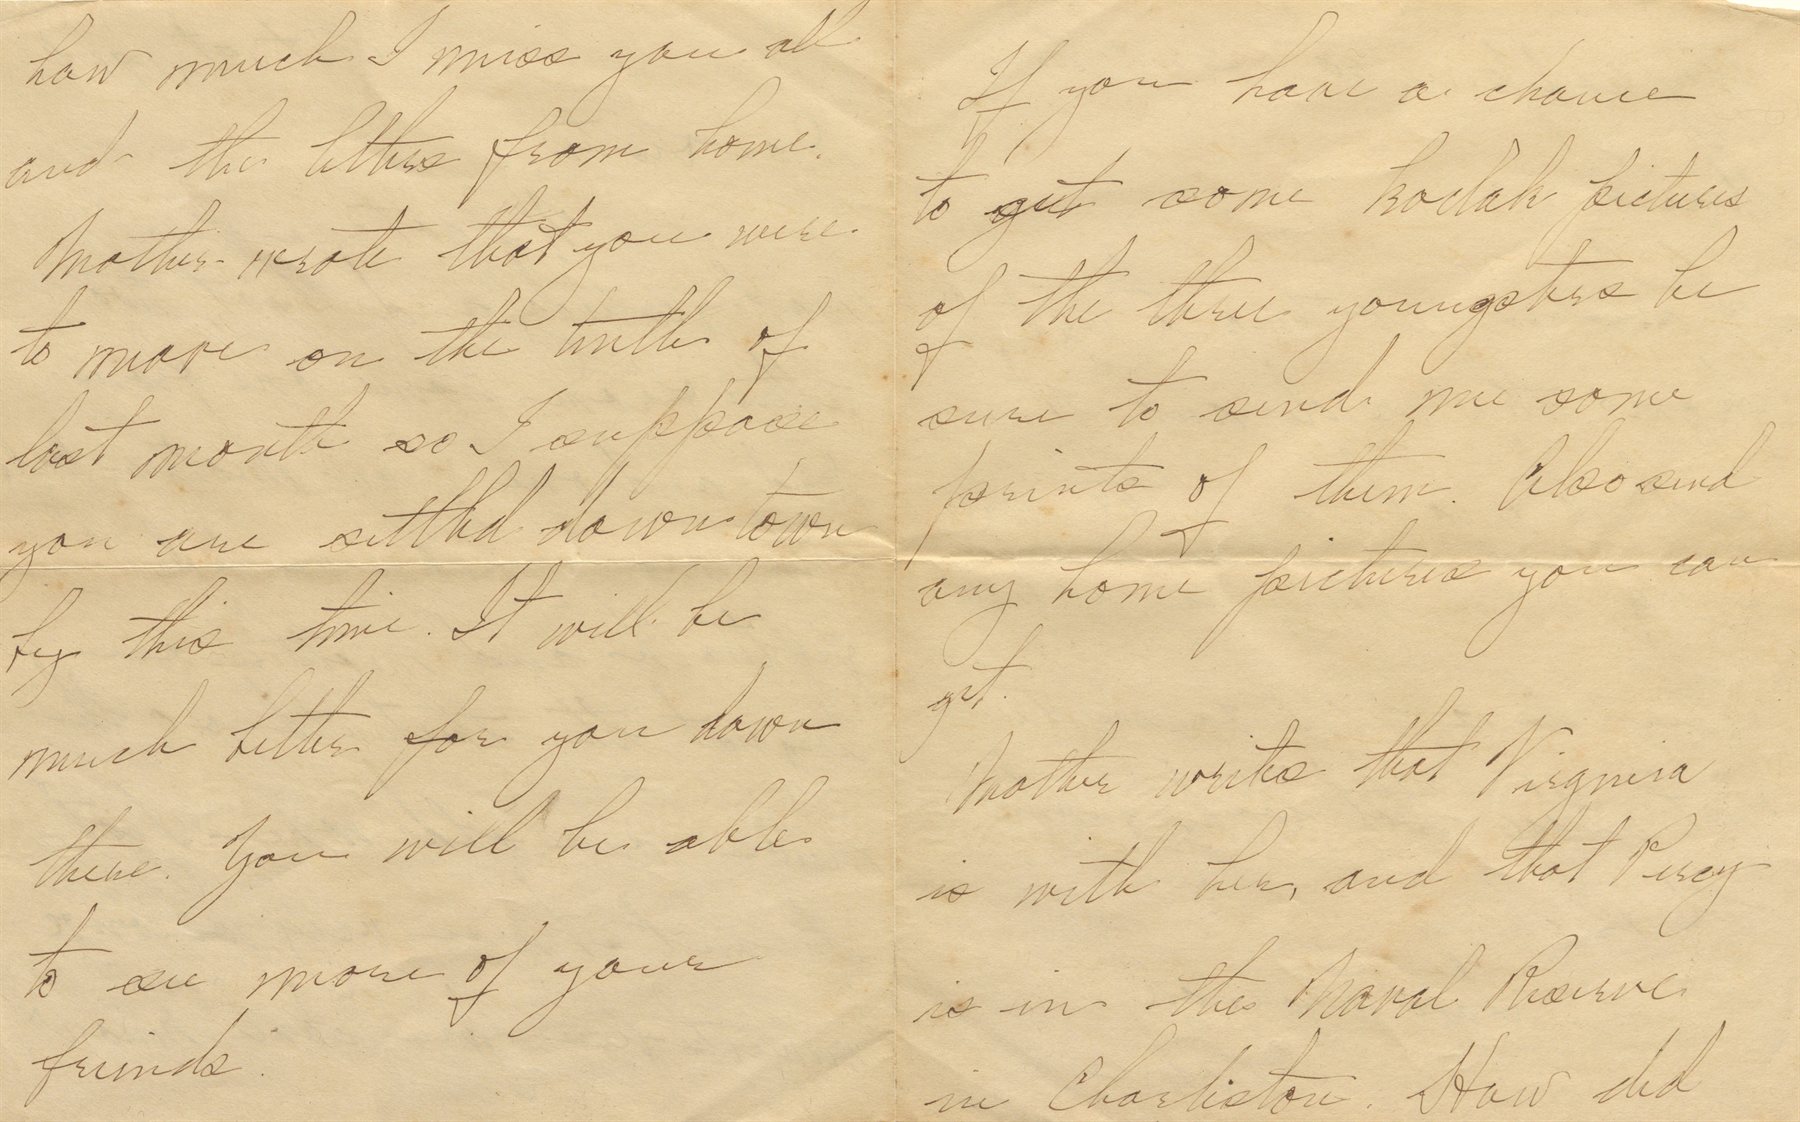 how much I miss you all
and the letters from home.
Mother wrote that you were
to move on the tenth of
last month so I suppose
you are settled down town
by this time. It will be
much better for you down
there. You will be able
to see more of your
friends.
If you have a chance
to get some kodak pictures
of the three youngsters be
sure to send me some
prints of them. Also send
any home pictures you can
get.
Mother writes that Virginia
is with her, and that Percy
is in the Naval Reserve
in Charleston. How did